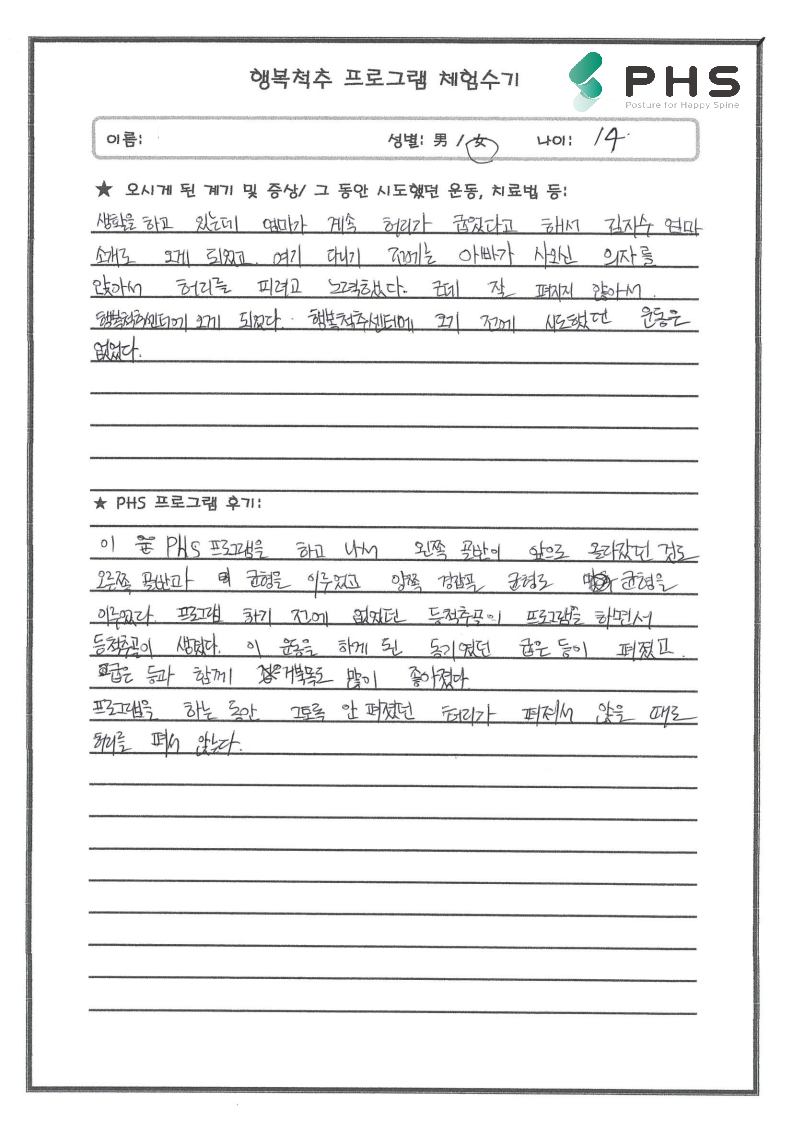 행복척추 프로그램 체험수기
PHS
Posture for Happy Spine
이름: 성별: 男 / 女 나이: 14
★ 오시게 된 계기 및 증상/ 그 동안 시도했던 운동, 치료법 등:
생활을 하고 있는데 엄마가 계속 허리가 굽었다고 해서 김지수 엄마
소개로 오게 되었고. 여기 다니기 전에는 아빠가 사오신 의자를
앉아서 허리를 피려고 노력했다. 근데 잘 펴지지 않아서.
행복척추센터에 오게 되었다. 행복척추센터에 오기 전에 시도했던 운동은
없었다.
★ PHS 프로그램 후기:
이 PHS 프로그램을 하고 나서 왼쪽 골반이 앞으로 올라갔던 것도
오른쪽 골반과 균형을 이루었고 양쪽 견갑골 균형도 균형을
이루었다. 프로그램 하기 전에 없었던 등척추골이 프로그램을 하면서
등척추골이 생겼다. 이 운동을 하게 된 동기였던 굽은 등이 펴졌고.
굽은 등과 함께 거북목도 많이 좋아졌다.
프로그램을 하는 동안 그토록 안 펴졌던 허리가 펴져서 앉을 때도
허리를 펴서 앉는다.